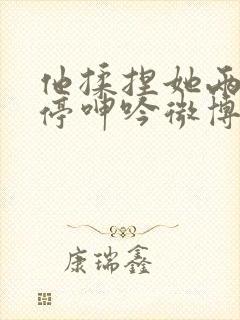 他揉捏她两
停呻吟微博
康瑞鑫